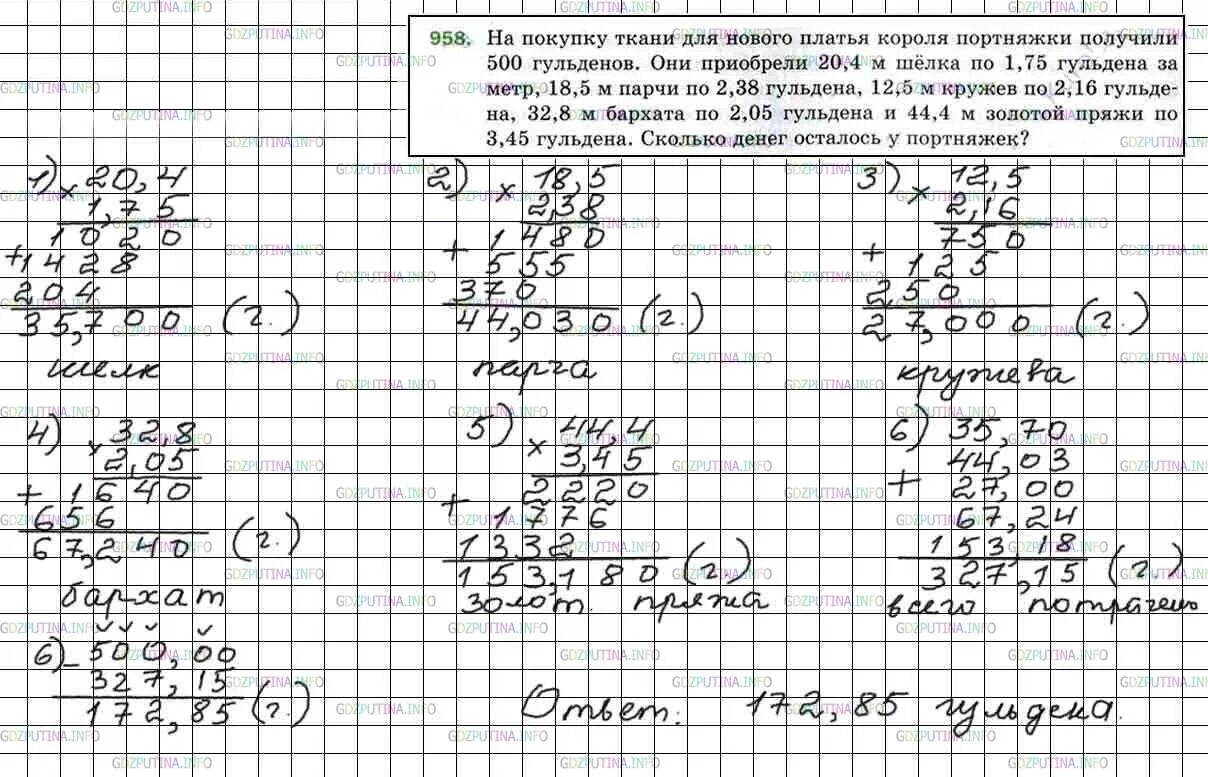 958. На покупку ткани для нового платья короля портняжки получили
500 гульденов. Они приобрели 20,4 м шёлка по 1,75 гульдена за
метр, 18,5 м парчи по 2,38 гульдена, 12,5 м кружев по 2,16 гульде-
на, 32,8 м бархата по 2,05 гульдена и 44,4 м золотой пряжи по
3,45 гульдена. Сколько денег осталось у портняжек?
1) × 20,4
1,75
1020
+ 1428
204
35,700 (г.)
шелк
2) × 18,5
2,38
1480
+ 555
370
44,030 (г.)
парча
3) × 12,5
2,16
750
+ 125
250
27,000 (г.)
кружева
4) × 32,8
2,05
+ 1640
656
67,240 (г.)
бархат
5) × 44,4
3,45
2220
+ 1776
1332
153,180 (г.)
золот. пряжа
6) 35,70
44,03
+ 27,00
67,24
153,18
327,15 (г.)
всего потрачено
6) - 500,00
327,15
172,85 (г.)
Ответ: 172,85 гульдена.
GDZPUTINA.INFO